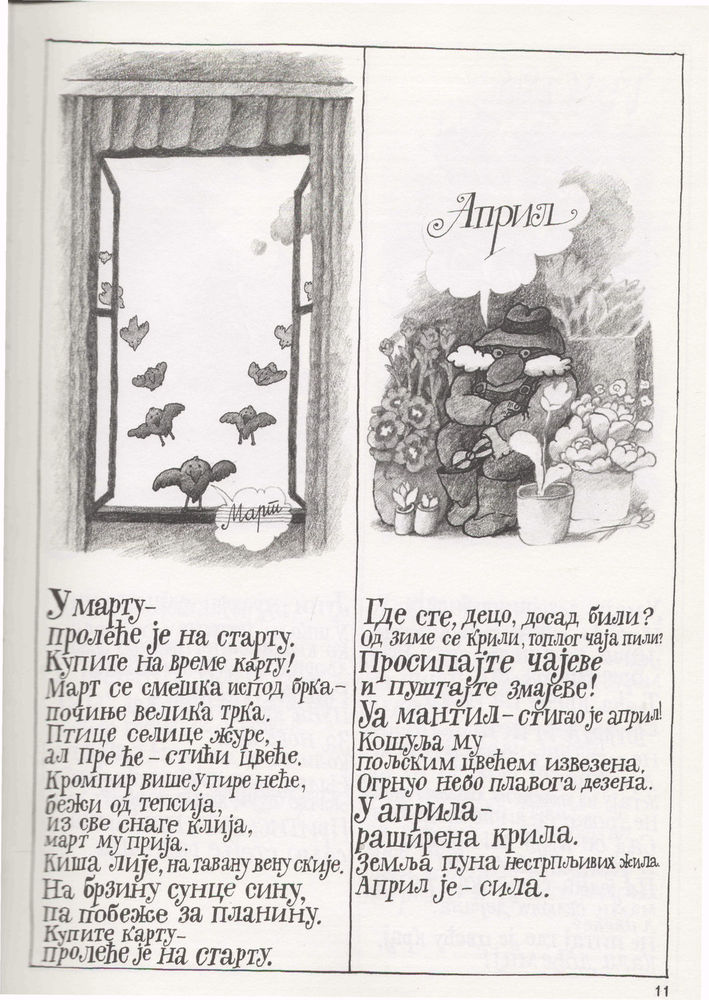 Март
У марту–
пролеће је на старту.
Купите на време карту!
Март се смешка испод брка–
почиње велика трка.
Птице селице журе,
ал пре ће – стићи цвеће.
Кромпир више у пире неће,
бежи од тепсија,
из све снаге клија,
март му прија.
Киша лије, на тавану вену скије.
На брзину сунце сину,
па побеже за планину.
Купите карту–
пролеће је на старту.
Април
Где сте, децо, досад били?
Од зиме се крили, топлог чаја пили?
Просипајте чајеве
и пуштајте змајеве!
Уа мантил – стигао је април!
Кошуља му
пољским цвећем извезена.
Огрнуо небо плавога дезена.
У априла–
раширена крила.
Земља пуна нестрпљивих жила.
Април је – сила.
11